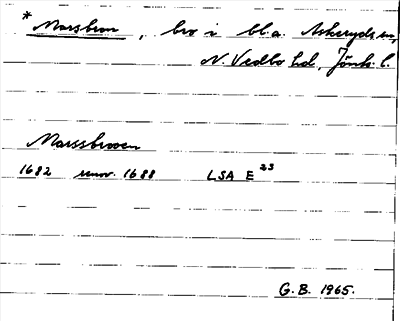 * Marsbron, bro i bl.a. Askeryds sn,
N. Vedbo hd, Jönk. l.
Marssbrooen
1682 renov. 1688 LSA E 23
G.B. 1965.